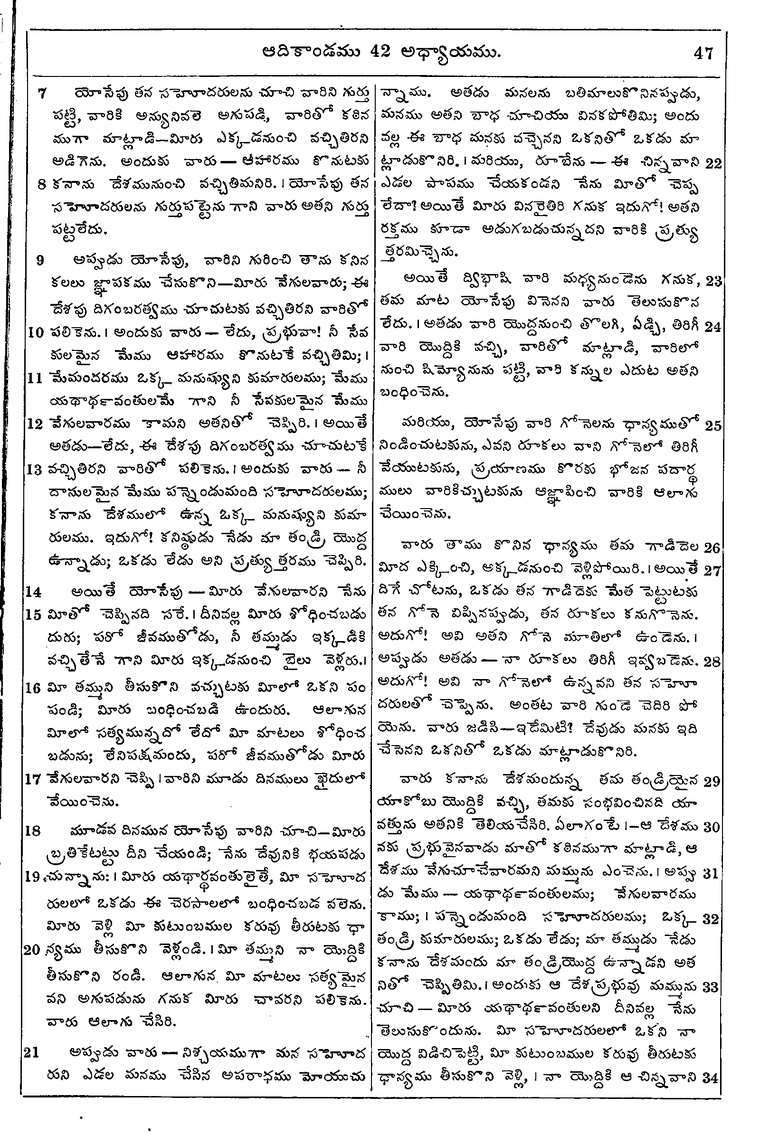 ఆదికాండము 42 అధ్యాయము. 47
7 యోసేపు తన సహోదరులను చూచి వారిని గుర్తు
పట్టి, వారికి అన్యునివలె అగుపడి, వారితో కఠిన
ముగా మాట్లాడి—మీరు ఎక్కడనుంచి వచ్చితిరని
అడిగెను. అందుకు వారు — ఆహారము కొనుటకు
8 కనాను దేశమునుంచి వచ్చితిమనిరి. । యోసేపు తన
సహోదరులను గుర్తుపట్టెను గాని వారు అతని గుర్తు
పట్టలేదు.
9 అప్పుడు యోసేపు, వారిని గురించి తాను కనిన
కలలు జ్ఞాపకము చేసుకొని—మీరు వేగులవారు; ఈ
దేశపు దిగంబరత్వము చూచుటకు వచ్చితిరని వారితో
10 పలికెను. । అందుకు వారు — లేదు, ప్రభువా! నీ సేవ
కులమైన మేము ఆహారము కొనుటకే వచ్చితిమి; ।
11 మేమందరము ఒక్క మనుష్యుని కుమారులము; మేము
యథార్థవంతులమే గాని నీ సేవకులమైన మేము
12 వేగులవారము కామని అతనితో చెప్పిరి. । అయితే
అతడు—లేదు, ఈ దేశపు దిగంబరత్వము చూచుటకే
13 వచ్చితిరని వారితో పలికెను. । అందుకు వారు — నీ
దాసులమైన మేము పన్నెండుమంది సహోదరులము;
కనాను దేశములో ఉన్న ఒక్క మనుష్యుని కుమా
రులము. ఇదుగో! కనిష్ఠుడు నేడు మా తండ్రి యొద్ద
ఉన్నాడు; ఒకడు లేడు అని ప్రత్యుత్తరము చెప్పిరి.
14 అయితే యోసేపు — మీరు వేగులవారని నేను
15 మీతో చెప్పినది సరే. । దీనివల్ల మీరు శోధించబడు
దురు; ఫరో జీవముతోడు, నీ తమ్ముడు ఇక్కడికి
వచ్చితేనే గాని మీరు ఇక్కడనుంచి బైలు వెళ్లరు. ।
16 మీ తమ్ముని తీసుకొని వచ్చుటకు మీలో ఒకని పం
పండి; మీరు బంధించబడి ఉందురు. ఆలాగున
మీలో సత్యమున్నదో లేదో మీ మాటలు శోధించ
బడును; లేనిపక్షమందు, ఫరో జీవముతోడు మీరు
17 వేగులవారని చెప్పి । వారిని మూడు దినములు ఖైదులో
వేయించెను.
18 మూడవ దినమున యోసేపు వారిని చూచి—మీరు
బ్రతికేటట్టు దీని చేయండి; నేను దేవునికి భయపడు
19 చున్నాను: । మీరు యథార్థవంతులైతే, మీ సహోద
రులలో ఒకడు ఈ చెరసాలలో బంధించబడ వలెను.
మీరు వెళ్లి మీ కుటుంబముల కరువు తీరుటకు ధా
20 న్యము తీసుకొని వెళ్లండి. । మీ తమ్ముని నా యొద్దికి
తీసుకొని రండి. ఆలాగున మీ మాటలు సత్యమైన
వని అగుపడును గనుక మీరు చావరని పలికెను.
వారు ఆలాగు చేసిరి.
21 అప్పుడు వారు — నిశ్చయముగా మన సహోద
రుని ఎడల మనము చేసిన అపరాధము మోయుచు
న్నాము. అతడు మనలను బతిమాలుకొనినప్పుడు,
మనము అతని బాధ చూచియు వినకపోతిమి; అందు
వల్ల ఈ బాధ మనకు వచ్చెనని ఒకనితో ఒకడు మా
ట్లాడుకొనిరి. । మరియు, రూబేను — ఈ చిన్నవాని 22
ఎడల పాపము చేయకండని నేను మీతో చెప్ప
లేదా? అయితే మీరు వినరైతిరి గనుక ఇదుగో! అతని
రక్తము కూడా అడుగబడుచున్నదని వారికి ప్రత్యు
త్తరమిచ్చెను.
అయితే ద్విభాషి వారి మధ్యనుండెను గనుక, 23
తమ మాట యోసేపు వినెనని వారు తెలుసుకొన
లేదు. । అతడు వారి యొద్దనుంచి తొలగి, ఏడ్చి, తిరిగీ 24
వారి యొద్దికి వచ్చి, వారితో మాట్లాడి, వారిలో
నుంచి షిమ్యోనును పట్టి, వారి కన్నుల ఎదుట అతని
బంధించెను.
మరియు, యోసేపు వారి గోనెలను ధాన్యముతో 25
నిండించుటకును, ఎవని రూకలు వాని గోనెలో తిరిగీ
వేయుటకును, ప్రయాణము కొరకు భోజన పదార్థ
ములు వారికిచ్చుటకును ఆజ్ఞాపించి వారికి ఆలాగు
చేయించెను.
వారు తాము కొనిన ధాన్యము తమ గాడిదెల 26
మీద ఎక్కించి, అక్కడనుంచి వెళ్లిపోయిరి. । అయితే 27
దిగే చోటను, ఒకడు తన గాడిదెకు మేత పెట్టుటకు
తన గోనె విప్పినప్పుడు, తన రూకలు కనుగొనెను.
అదుగో! అవి అతని గోనె మూతిలో ఉండెను. ।
అప్పుడు అతడు — నా రూకలు తిరిగీ ఇవ్వబడెను. 28
అదుగో! అవి నా గోనెలో ఉన్నవని తన సహో
దరులతో చెప్పెను. అంతట వారి గుండె చెదిరి పో
యెను. వారు జడిసి—ఇదేమిటి? దేవుడు మనకు ఇది
చేసెనని ఒకనితో ఒకడు మాట్లాడుకొనిరి.
వారు కనాను దేశమందున్న తమ తండ్రియైన 29
యాకోబు యొద్దికి వచ్చి, తమకు సంభవించినది యా
వత్తును అతనికి తెలియచేసిరి. ఏలాగంటే । —ఆ దేశము 30
నకు ప్రభువైనవాడు మాతో కఠినముగా మాట్లాడి, ఆ
దేశము వేగుచూచేవారమని మమ్మును ఎంచెను. । అప్పు 31
డు మేము — యథార్థవంతులము; వేగులవారము
కాము; । పన్నెండుమంది సహోదరులము; ఒక్క 32
తండ్రి కుమారులము; ఒకడు లేడు; మా తమ్ముడు నేడు
కనాను దేశమందు మా తండ్రియొద్ద ఉన్నాడని అత
నితో చెప్పితిమి. । అందుకు ఆ దేశప్రభువు మమ్మును 33
చూచి — మీరు యథార్థవంతులని దీనివల్ల నేను
తెలుసుకొందును. మీ సహోదరులలో ఒకని నా
యొద్ద విడిచిపెట్టి, మీ కుటుంబముల కరువు తీరుటకు
ధాన్యము తీసుకొని వెళ్లి, । నా యొద్దికి ఆ చిన్నవాని 34